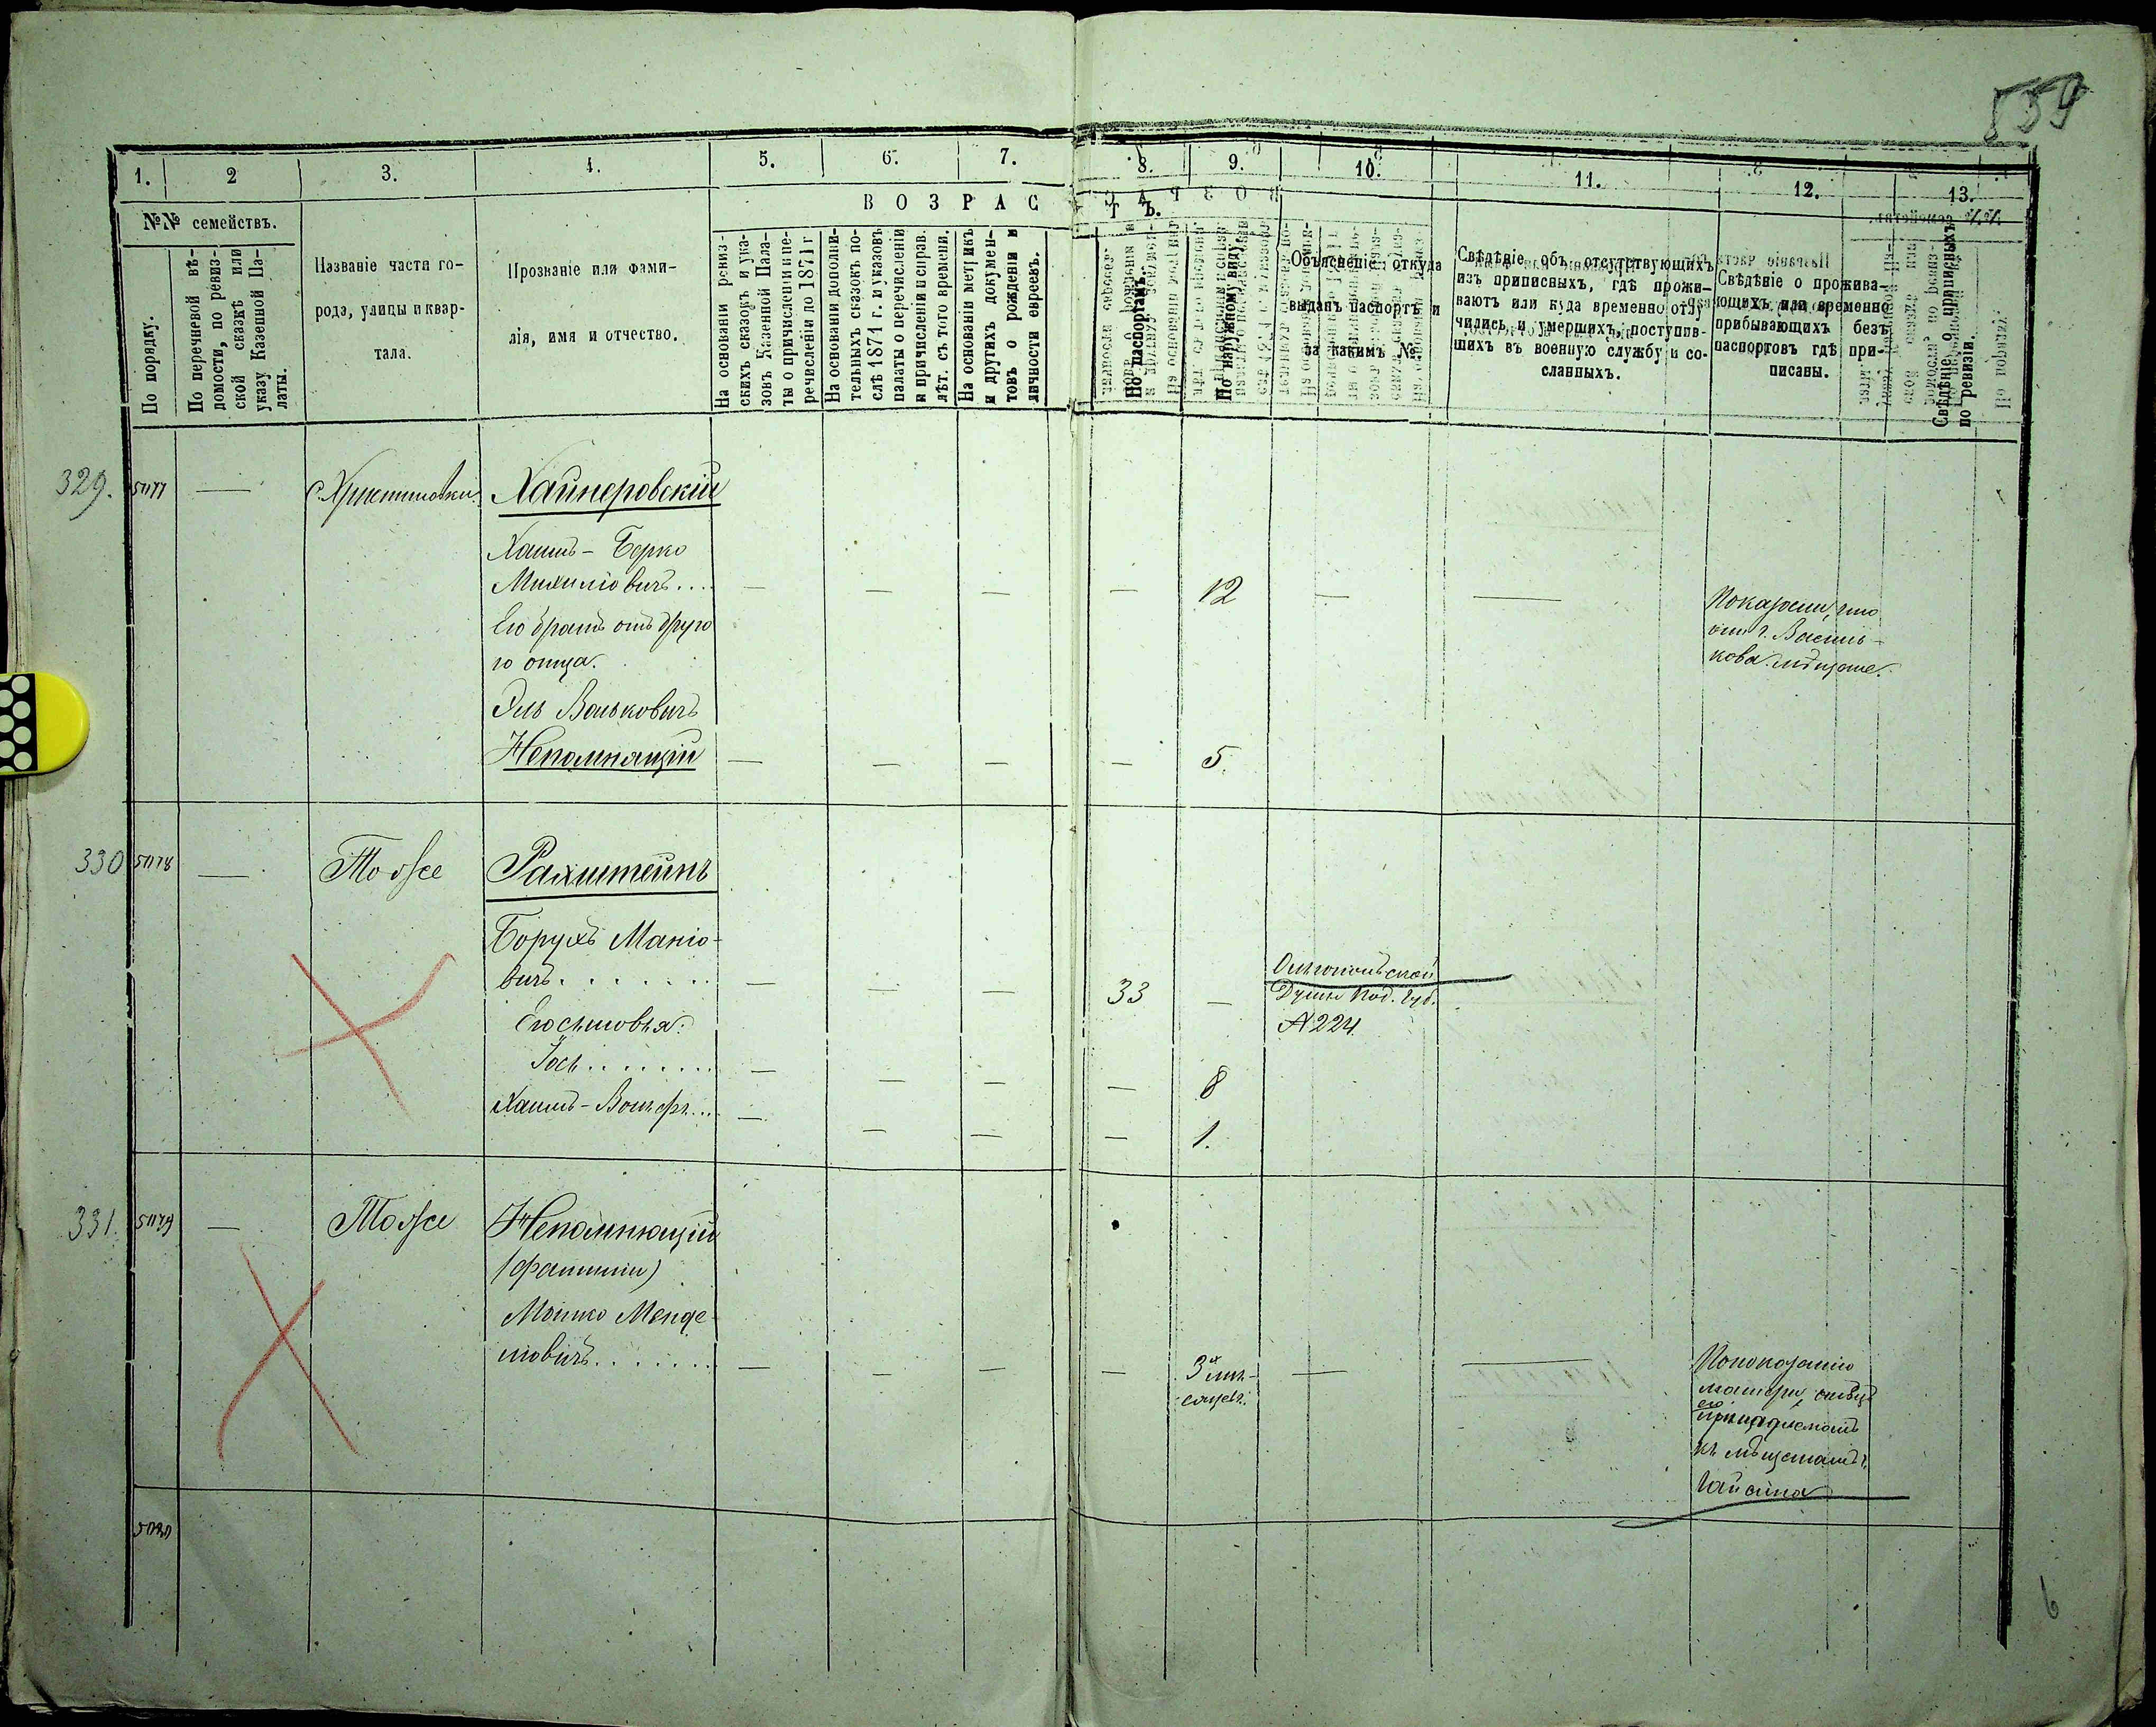 559
1. 2 3. 4. 5. 6. 7. 8. 9. 10. 11. 12. 13.
№№ семействъ.
В О З Р А С Т Ъ.
По порядку.
По перечневой вѣ-
домости, по ревиз-
ской сказкѣ или
указу Казенной Па-
латы.
Названіе части го-
рода, улицы и квар-
тала.
Прозваніе или фами-
лія, имя и отчество.
На основаніи ревиз-
скихъ сказокъ и ука-
зовъ Казенной Пала-
ты о причисленіи и пе-
речисленіи до 1871 г
На основаніи дополни-
тельныхъ сказокъ по-
слѣ 1871 г. и указовъ
палаты о перечисленіи
и причисленіи и справ.
лѣт. съ того времени.
На основаніи метрикъ
и другихъ докумен-
товъ о рожденіи и
личности евреевъ.
По паспортамъ.
По наружному виду.
Объясненіе откуда
выданъ паспортъ и
за какимъ №
Свѣдѣніе объ отсутствующихъ
изъ приписныхъ, гдѣ прожи-
ваютъ или куда временно отлу
чились и умершихъ, поступив-
шихъ въ военную службу и со-
сланныхъ.
Свѣдѣніе о прожива-
ющихъ или временно
прибывающихъ безъ
паспортовъ гдѣ при-
писаны.
Свѣдѣніе о приписныхъ
по ревизіи.
329. с. Христиновки. Хайнеровскій
Хаимъ - Берко
Михилiовичъ.... — — — — 12 — —
Его братъ отъ друго
го отца.
Эль Вольковичъ
Непомнящій — — — — 5.
Показали, что
они г. Василь-
кова мѣщане.
330 5178 — Тоже Рахштейнъ
Борухъ Маніо-
вичъ....... — — — 33 —
Ольгопольской
Думы Под. Губ.
№ 224
Его сыновья:
Іось........ — — — — 8
Хаимъ - Вольфъ... — — — — 1.
331. 5179 — Тоже Непомнющій
(фамиліи)
Мошко Менде-
лiовичъ....... — — — — 3х мѣ-
сяцевъ. — —
По показанію
матери отецъ
его
принадлежитъ
къ мѣщанамъ г.
Гайсина
6